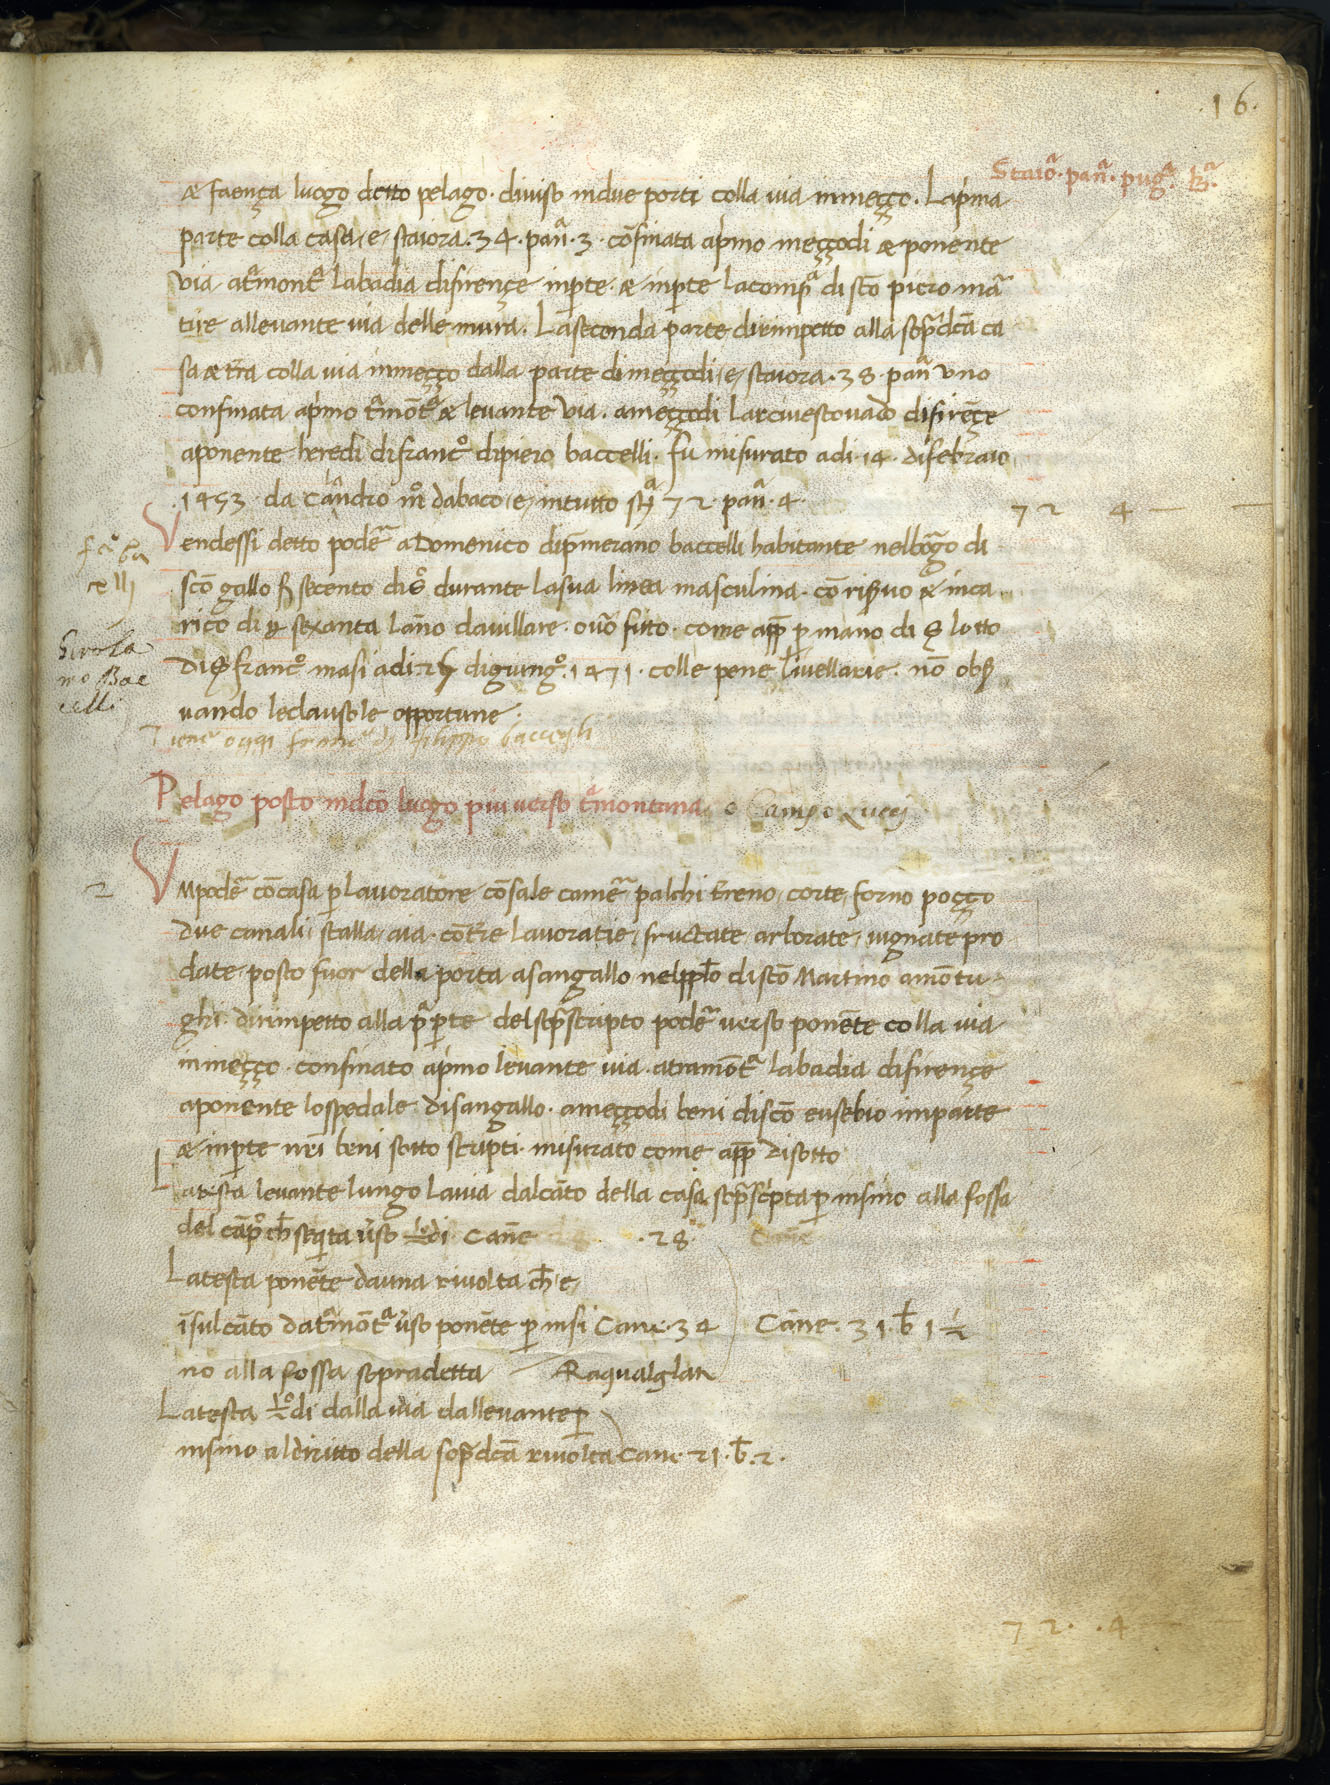 16.
Staioᵃ. panᵃ. pugᵃ. Bᵃ.
æ faença luogo detto pelago. diviso in due porti colla via in meçço. La pima
parte colla casa, e, staiora. 34. panᵃ. 3. cōfinata apimo meççodi æ ponente
via. atᵃmontᵃ labadia difirençe inpte. æ inpte lacompᵃ di sc̄o piero ma
tire allevante via delle mura. La seconda parte dirimpetto alla sop̄dc̄a ca
sa æ tr̄a colla via in meçço dalla parte di meççodi, e, staiora. 38. panᵃ uno
confinata apimo tᵃmōtᵃ æ levante via. ameççodi larcivescovado difirēçe
aponente heredi difrancº dipiero baccelli. fu misurato adi. 14. difebraio
.1453. da Cālandro mº dabaco, e, intutto stᵃ 72. panᵃ. 4.
72 4 —
Vendessi detto podeᵃ a Domenico dip̄merano baccelli habitante nelbōgo di
sc̄o gallo f secento dis durante lasua linea masculina. cō risᵱvo æ inca
rico di sexanta lāno davillare. ovō fitto. come app̄ p mano di S lotto
di S francº masi adi. 25 digiungº. 1471. colle pene livellarie. nō obs
vando leclausole opportune.
Tiene oggi francº di filippo baccegli
fᵃº ba
celli
Girola
mo Bac
celli
Pelago posto indc̄o luogo piu verso tᵃmontana. o Campo Lucij
2
Vmpodeᵃ cōcasa p lavoratore cōsale cameᵃ palchi t̄reno, corte, forno poçço
due canali, stalla, aia. cōtr̄e lavoratie, fructate arborate, vignate pro
date. posto fuor della porta asangallo nelpplō di sc̄o Martino amōtu
ghi. dirimpetto alla pᵃ pte del sop̄scripto podeᵃ verso ponēte colla via
in meçço. confinato apimo levante via. atramōtᵃ labadia difirençe
aponente lospedale disangallo. ameççodi beni disc̄o eusebio imparte
æ inpte nr̄i beni sotto scripti. misurato come app̄ disotto
Latesta levante lungo lavia dalcāto della casa sop̄scipta p insino alla fossa
del cāpº ch̄ seqita vso ½di Cane .28.
Latesta ponēte dauna rivolta ch̄, e,
īsulcāto datᵃmōtᵃ vso ponēte p insi Cane. 34 Cāne. 31. b̄ 1½
no alla fossa sopradetta Raqualglati
Latesta ½ºdi dalla via dallevante p
insino aldiritto della sop̄dc̄a rivolta Cane. 21. b̄. 2.
72. .4 —